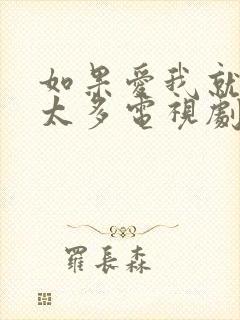 如果愛我就
太多電視劇
羅長森